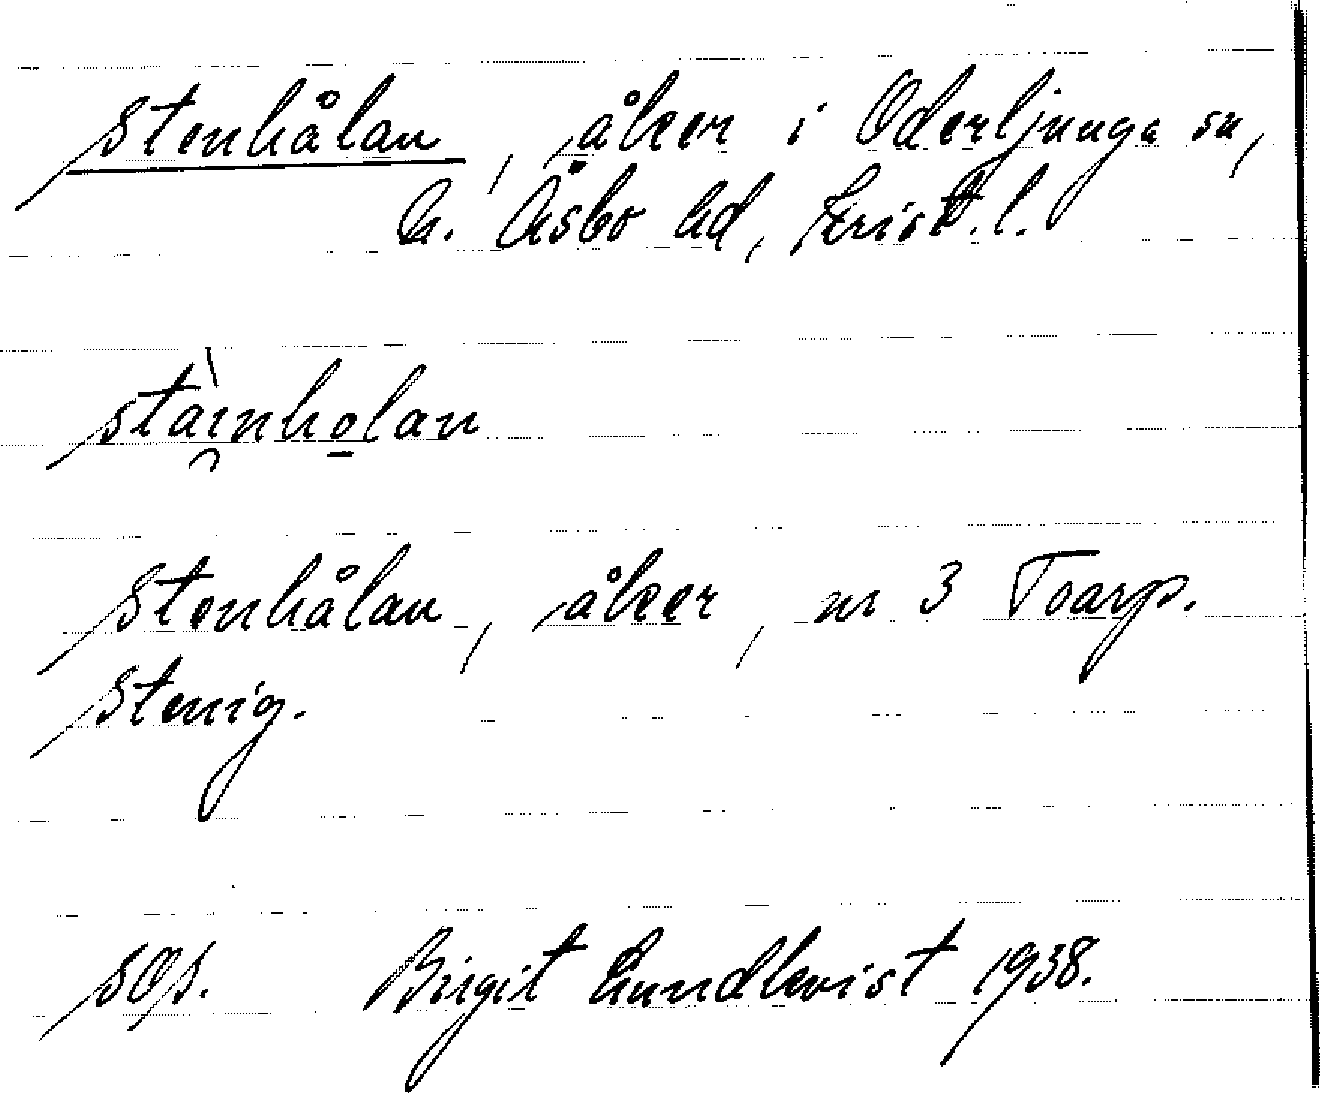 Stenhålan, åker i Oderljunga sn,
N. Åsbo hd, Krist. l.
stàinho̲lan
Stenhålan, åker, nr 3 Toarp.
Stenig.
sOp. Birgit Lundkvist 1938.